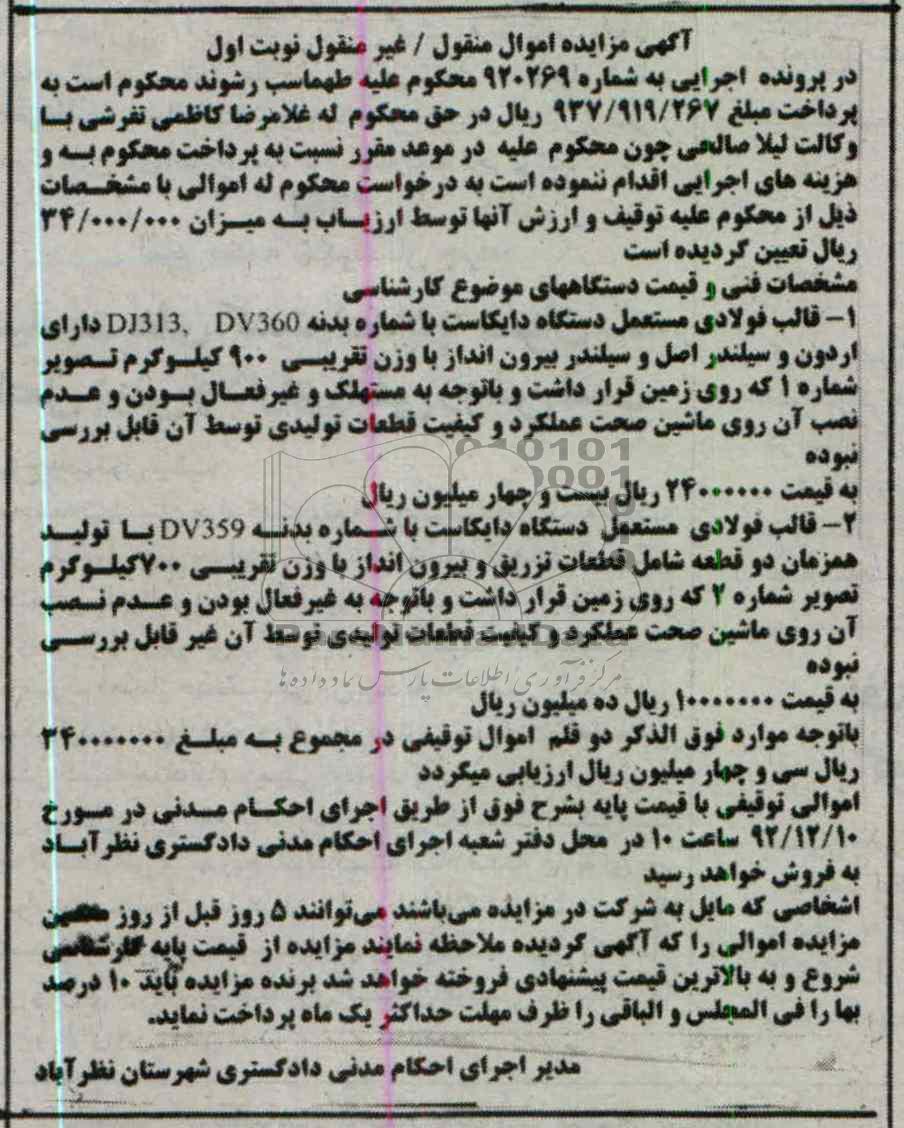 آگهی مزایده اموال منقول / غیر منقول نوبت اول
در پرونده اجرایی به شماره ۹۲۰۲۶۹ محکوم علیه طهماسب رشوند محکوم است به
پرداخت مبلغ ۹۳۷/۹۱۹/۲۶۷ ریال در حق محکوم له غلامرضا کاظمی تفرشی بـا
وکالت لیلا صالحی چون محکوم علیه در موعد مقرر نسبت به پرداخت محکوم بـه و
هزینه های اجرایی اقدام ننموده است به درخواست محکوم له اموالی با مشخـصات
ذیل از محکوم علیه توقیف و ارزش آنها توسط ارزیـاب بـه میـزان ۳۴/۰۰۰/۰۰۰
ریال تعیین گردیده است
مشخصات فنی و قیمت دستگاههای موضوع کارشناسی
۱– قالب فولادی مستعمل دستگاه دایکاست با شماره بدنه DJ313، DV360 دارای
اردون و سیلندر اصل و سیلندر بیرون انداز با وزن تقریبـی ۹۰۰ کیلـوگرم تـصویر
شماره ۱ که روی زمین قرار داشت و باتوجه به مستهلک و غیرفعـال بـودن و عـدم
نصب آن روی ماشین صحت عملکرد و کیفیت قطعات تولیدی توسط آن قابل بررسی
نبوده
به قیمت ۲۴۰۰۰۰۰۰ ریال بیست و چهار میلیون ریال
۲– قالب فولادی مستعمل دستگاه دایکاست با شـماره بدنـه DV359 بـا تولیـد
همزمان دو قطعه شامل قطعات تزریق و بیرون انداز با وزن تقریبـی ۷۰۰کیلـوگرم
تصویر شماره ۲ که روی زمین قرار داشت و باتوجه به غیرفعال بودن و عـدم نـصب
آن روی ماشین صحت عملکرد و کیفیت قطعات تولیدی توسط آن غیر قابل بررسـی
نبوده
مرکز فرآوری اطلاعات پارس نماد داده ها
به قیمت ۱۰۰۰۰۰۰۰ ریال ده میلیون ریال
باتوجه موارد فوق الذکر دو قلم اموال توقیفی در مجموع بـه مبلـغ ۳۴۰۰۰۰۰۰
ریال سی و چهار میلیون ریال ارزیابی میگردد
اموالی توقیفی با قیمت پایه بشرح فوق از طریق اجرای احکـام مـدنی در مـورخ
۹۲/۱۲/۱۰ ساعت ۱۰ در محل دفتر شعبه اجرای احکام مدنی دادگستری نظرآبـاد
به فروش خواهد رسید
اشخاصی که مایل به شرکت در مزایده می‌باشند می‌توانند ۵ روز قبل از روز
مزایده اموالی را که آگهی گردیده ملاحظه نمایند مزایده از قیمت پایه کارشناسی
شروع و به بالاترین قیمت پیشنهادی فروخته خواهد شد برنده مزایده باید ۱۰ درصد
بها را فی المجلس و الباقی را ظرف مهلت حداکثر یک ماه پرداخت نماید.
مدیر اجرای احکام مدنی دادگستری شهرستان نظرآباد